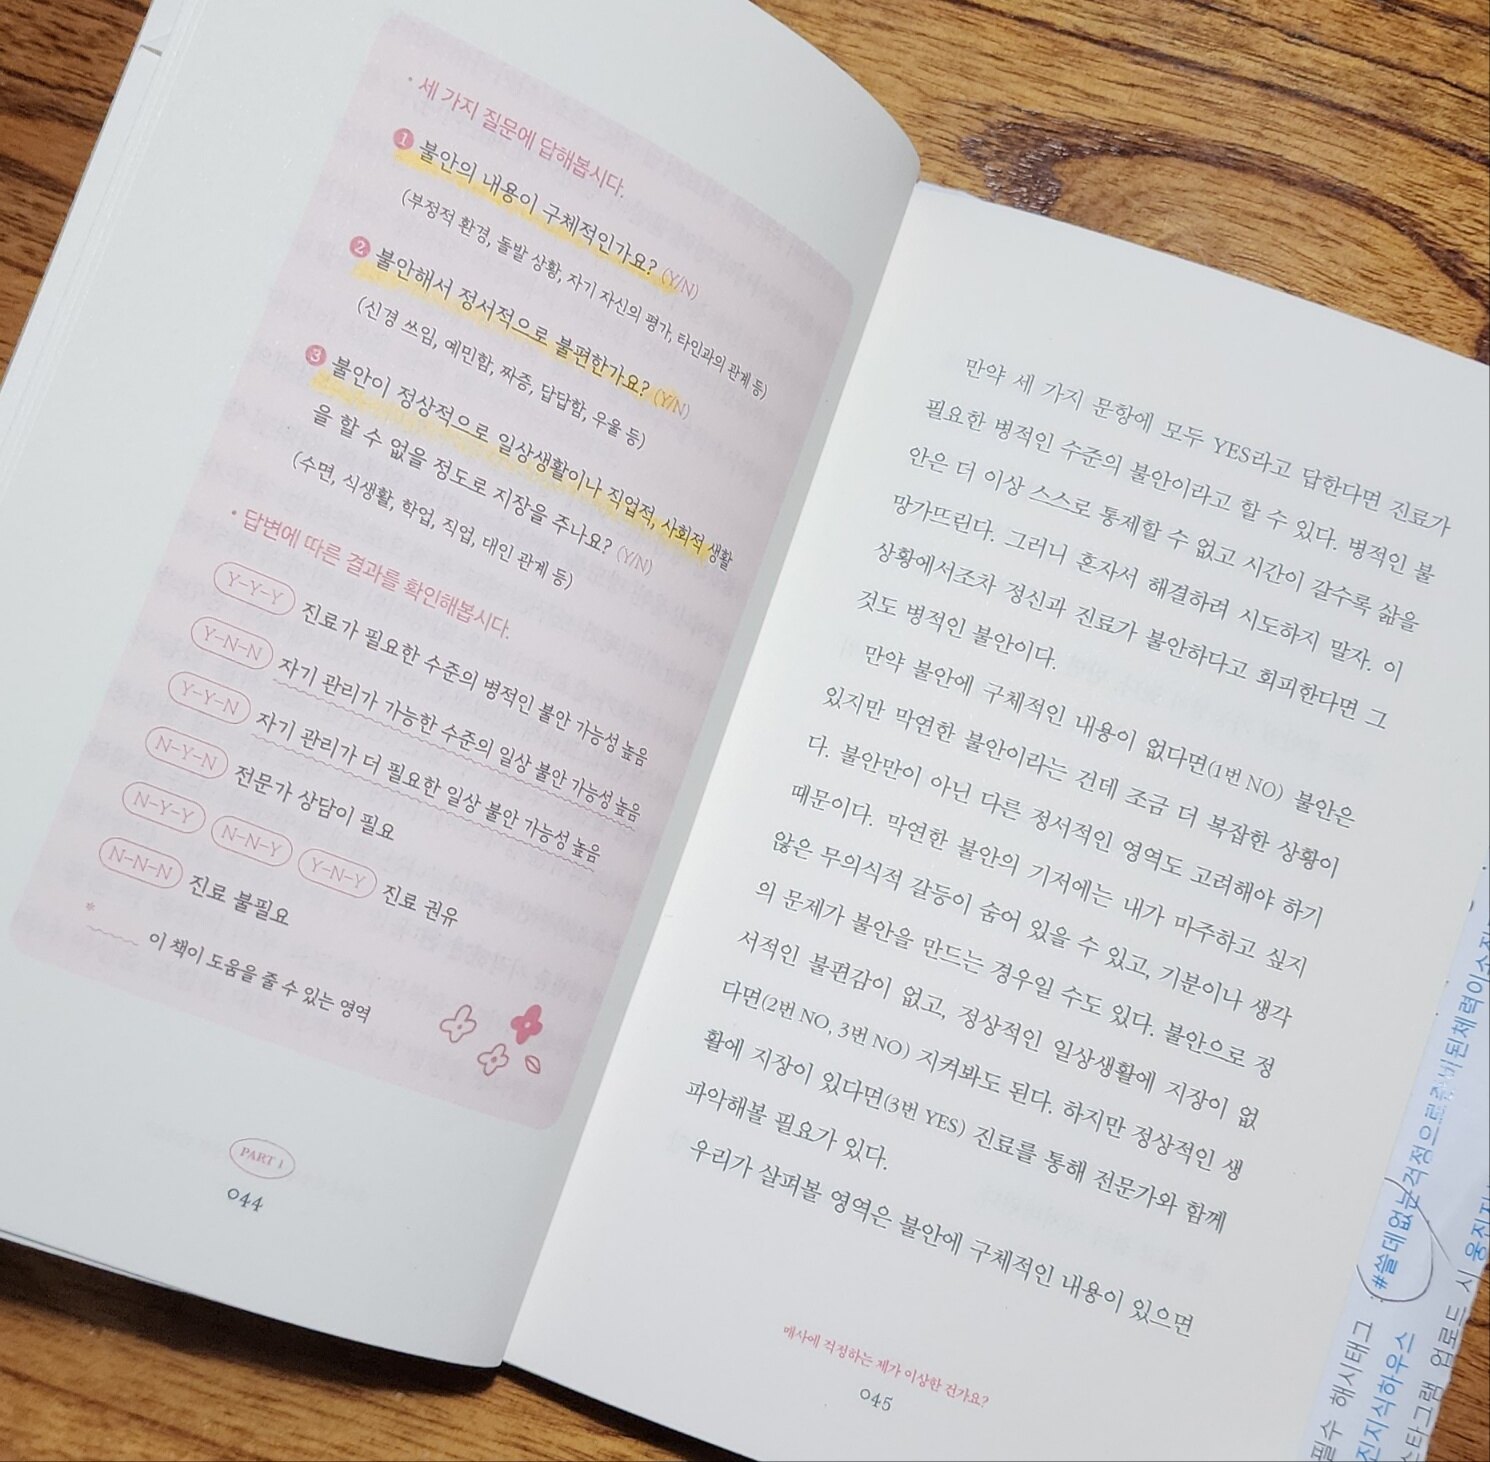 • 세 가지 질문에 답해봅시다.
1 불안의 내용이 구체적인가요? (Y/N)
(부정적 환경, 돌발 상황, 자기 자신의 평가, 타인과의 관계 등)
2 불안해서 정서적으로 불편한가요? (Y/N)
(신경 쓰임, 예민함, 짜증, 답답함, 우울 등)
3 불안이 정상적으로 일상생활이나 직업적, 사회적 생활
을 할 수 없을 정도로 지장을 주나요? (Y/N)
(수면, 식생활, 학업, 직업, 대인 관계 등)
• 답변에 따른 결과를 확인해봅시다.
Y-Y-Y 진료가 필요한 수준의 병적인 불안 가능성 높음
Y-N-N 자기 관리가 가능한 수준의 일상 불안 가능성 높음
Y-Y-N 자기 관리가 더 필요한 일상 불안 가능성 높음
N-Y-N 전문가 상담이 필요
N-Y-Y N-N-Y Y-N-Y 진료 권유
N-N-N 진료 불필요
* 이 책이 도움을 줄 수 있는 영역
PART 1
044
만약 세 가지 문항에 모두 YES라고 답한다면 진료가
필요한 병적인 수준의 불안이라고 할 수 있다. 병적인 불
안은 더 이상 스스로 통제할 수 없고 시간이 갈수록 삶을
망가뜨린다. 그러니 혼자서 해결하려 시도하지 말자. 이
상황에서조차 정신과 진료가 불안하다고 회피한다면 그
것도 병적인 불안이다.
만약 불안에 구체적인 내용이 없다면(1번 NO) 불안은
있지만 막연한 불안이라는 건데 조금 더 복잡한 상황이
다. 불안만이 아닌 다른 정서적인 영역도 고려해야 하기
때문이다. 막연한 불안의 기저에는 내가 마주하고 싶지
않은 무의식적 갈등이 숨어 있을 수 있고, 기분이나 생각
의 문제가 불안을 만드는 경우일 수도 있다. 불안으로 정
서적인 불편감이 없고, 정상적인 일상생활에 지장이 없
다면(2번 NO, 3번 NO) 지켜봐도 된다. 하지만 정상적인 생
활에 지장이 있다면(3번 YES) 진료를 통해 전문가와 함께
파악해볼 필요가 있다.
우리가 살펴볼 영역은 불안에 구체적인 내용이 있으면
매사에 걱정하는 제가 이상한 건가요?
045
필수 해시태그 : #쓸데없는걱정으로준비된체력이소진
진지식하우스
스타그램 업로드 시 웅진지